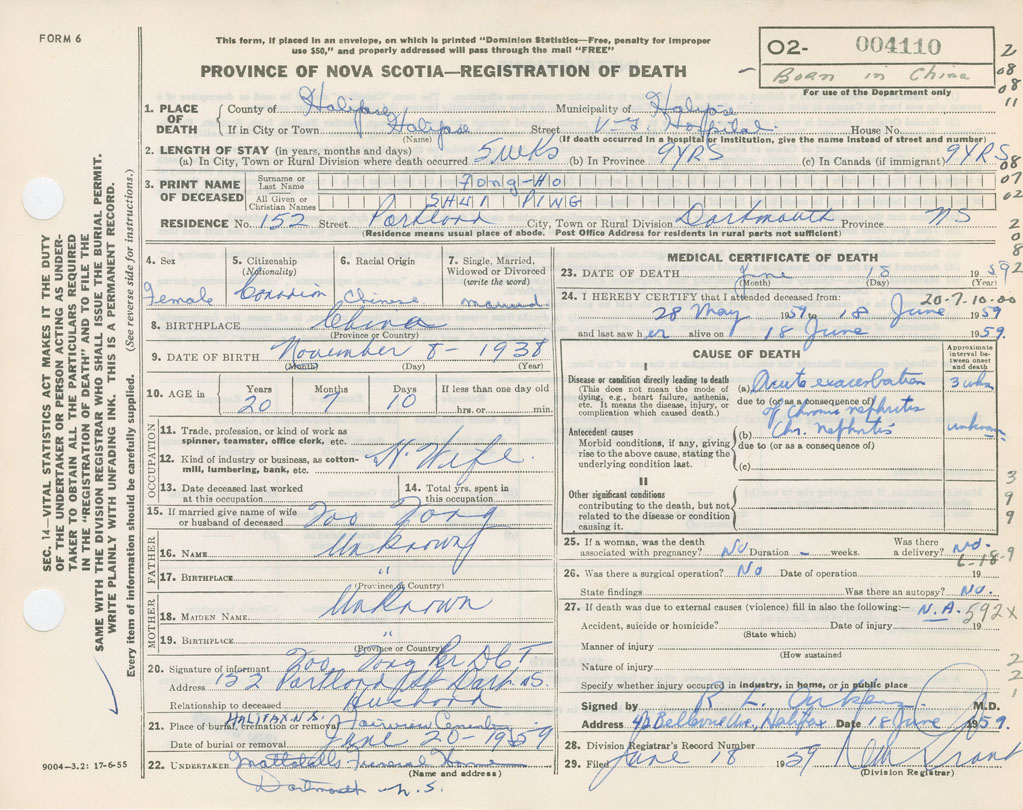 FORM 6
This form, if placed in an envelope, on which is printed "Dominion Statistics—Free, penalty for improper
use $50," and properly addressed will pass through the mail "FREE"
PROVINCE OF NOVA SCOTIA—REGISTRATION OF DEATH
O2- 004110
Born in China
For use of the Department only
2
08
08
11
SEC. 14—VITAL STATISTICS ACT MAKES IT THE DUTY
OF THE UNDERTAKER OR PERSON ACTING AS UNDER-
TAKER TO OBTAIN ALL THE PARTICULARS REQUIRED
IN THE "REGISTRATION OF DEATH" AND TO FILE THE
SAME WITH THE DIVISION REGISTRAR WHO SHALL ISSUE THE BURIAL PERMIT.
WRITE PLAINLY WITH UNFADING INK. THIS IS A PERMANENT RECORD.
Every item of information should be carefully supplied. (See reverse side for instructions.)
1. PLACE OF DEATH
County of Halifax Municipality of Halifax
If in City or Town Halifax Street V-G. Hospital House No.
(Name) (If death occurred in a hospital or institution, give the name instead of street and number)
2. LENGTH OF STAY (in years, months and days)
(a) In City, Town or Rural Division where death occurred 5 WKS (b) In Province 9 YRS (c) In Canada (if immigrant) 9 YRS
08
3. PRINT NAME OF DECEASED
Surname or Last Name FONG-HO
07
All Given or Christian Names SHUI PING
02
RESIDENCE No. 152 Street Portland City, Town or Rural Division Dartmouth Province NS
(Residence means usual place of abode. Post Office Address for residents in rural parts not sufficient)
2
0
8
2
4. Sex Female
5. Citizenship (Nationality) Canadian
6. Racial Origin Chinese
7. Single, Married, Widowed or Divorced (write the word) married
8. BIRTHPLACE China
(Province or Country)
9. DATE OF BIRTH November 8 - 1938
(Month) (Day) (Year)
10. AGE in Years 20 Months 7 Days 10 If less than one day old hrs. or min.
OCCUPATION
11. Trade, profession, or kind of work as
spinner, teamster, office clerk, etc.
12. Kind of industry or business, as cotton-
mill, lumbering, bank, etc. H. Wife
13. Date deceased last worked
at this occupation
14. Total yrs. spent in
this occupation
15. If married give name of wife
or husband of deceased Zoo Fong
FATHER
16. NAME Unknown
17. BIRTHPLACE "
(Province or Country)
MOTHER
18. MAIDEN NAME Unknown
19. BIRTHPLACE "
(Province or Country)
20. Signature of informant Zoo Fong Per D G T
Address 152 Portland St Dart. N.S.
Relationship to deceased Husband
21. Place of burial, cremation or removal HALIFAX N.S. Fairview Cemetery
Date of burial or removal June 20 - 1959
22. UNDERTAKER Mattatalls Funeral Home
(Name and address)
Dartmouth N.S.
9004—3.2: 17-6-55
MEDICAL CERTIFICATE OF DEATH
23. DATE OF DEATH June 18 1959
(Month) (Day) (Year)
24. I HEREBY CERTIFY that I attended deceased from: 20-7-10-00
28 May 1959 to 18 June 1959
and last saw her alive on 18 June 1959.
CAUSE OF DEATH
Approximate interval between onset and death
I
Disease or condition directly leading to death
(This does not mean the mode of
dying, e.g., heart failure, asthenia,
etc. It means the disease, injury, or
complication which caused death.)
(a) Acute exacerbation 3 wks
due to (or as a consequence of)
of chronic nephritis
Antecedent causes
Morbid conditions, if any, giving
rise to the above cause, stating the
underlying condition last.
(b) Chr. nephritis unknown
due to (or as a consequence of)
(c)
II
Other significant conditions
contributing to the death, but not
related to the disease or condition
causing it.
3
9
9
25. If a woman, was the death
associated with pregnancy? No Duration - weeks. Was there
a delivery? No.
6-18-9
26. Was there a surgical operation? No Date of operation 19
State findings Was there an autopsy? No.
27. If death was due to external causes (violence) fill in also the following:— N.A. 592X
Accident, suicide or homicide? Date of injury 19
(State which)
Manner of injury
(How sustained
Nature of injury
2
2
1
Specify whether injury occurred in industry, in home, or in public place
Signed by R L M.D.
Address 42 Bellevue Ave, Halifax Date 18 June 1959.
28. Division Registrar's Record Number
29. Filed June 18 1959
(Division Registrar)